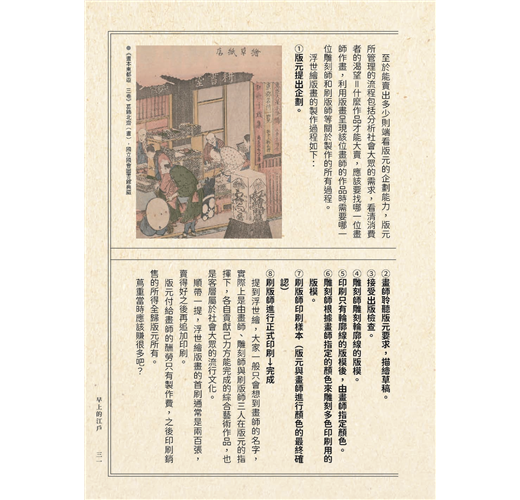 至於能賣出多少則端看版元的企劃能力，版元
所管理的流程包括分析社會大眾的需求，看清消費
者的渴望＝什麼作品才能大賣，應該要找哪一位畫
師作畫，利用版畫呈現該位畫師的作品時需要哪一
位雕刻師和刷版師等關於製作的所有過程。
浮世繪版畫的製作過程如下：
①版元提出企劃。
繪草紙店
●《畫本東都遊 三卷》葛飾北齋（畫）・國立國會圖書館典藏
②畫師聆聽版元要求，描繪草稿。
③接受出版檢查。
④雕刻師雕刻輪廓線的版模。
⑤印刷只有輪廓線的版模後，由畫師指定顏色。
⑥雕刻師根據畫師指定的顏色來雕刻多色印刷用的
版模。
⑦刷版師印刷樣本（版元與畫師進行顏色的最終確
認）
⑧刷版師進行正式印刷→完成
提到浮世繪，大家一般只會想到畫師的名字，
實際上是由畫師、雕刻師與刷版師三人在版元的指
揮下，各自貢獻己力方能完成的綜合藝術作品，也
是客層屬於社會大眾的流行文化。
順帶一提，浮世繪版畫的首刷通常是兩百張，
賣得好之後再追加印刷。
版元付給畫師的酬勞只有製作費，之後印刷銷
售的所得全歸版元所有。
蔦重當時應該賺很多吧？
早上的江戶
三一